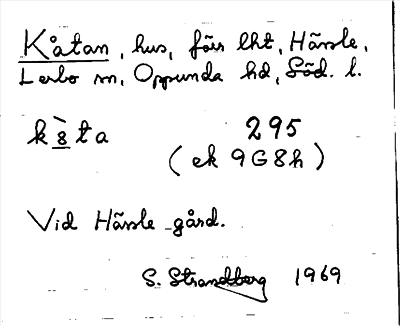 Kåtan, hus, förs lht, Hässle,
Lerbo sn, Oppunda hd, Söd. l.
k8̀ta 295
(ek 9G8h)
Vid Hässle gård.
S. Strandberg 1969